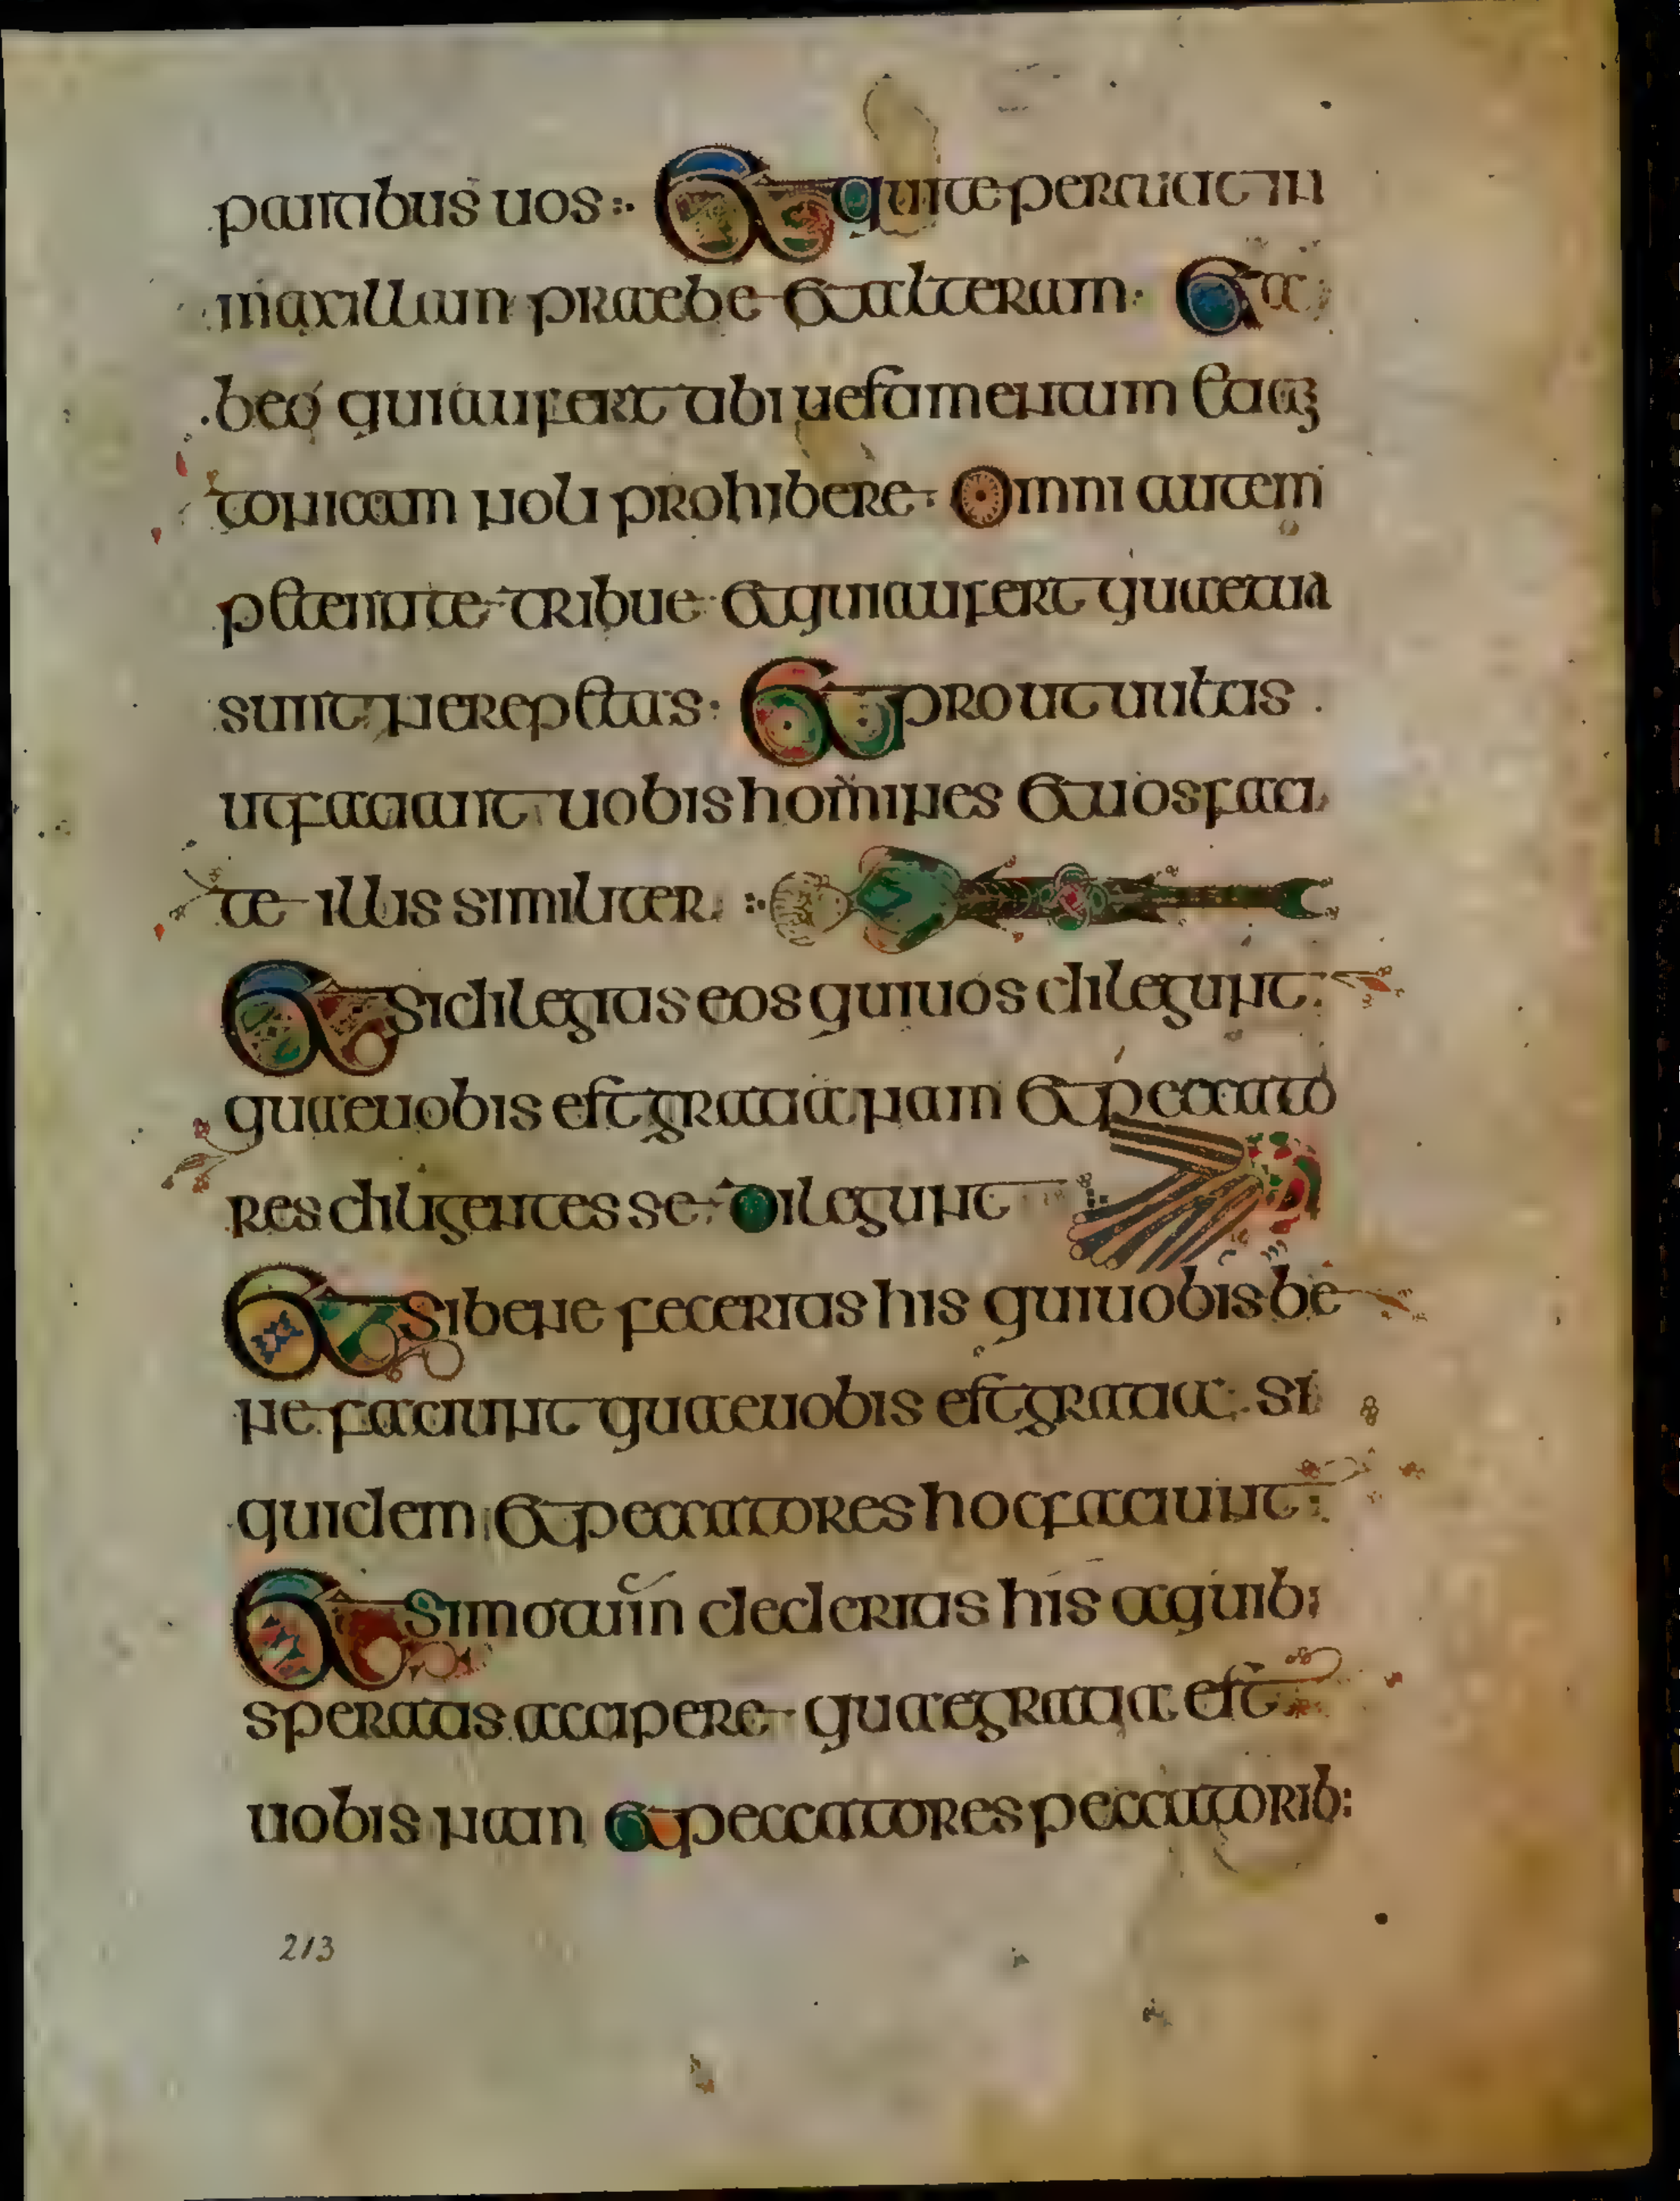 pantibus uos Et qui te percutit in
maxillam praebe et alteram Et a
beo qui aufert tibi uestamentum &amp;iam
tonicam noli prohibere Omni autem
petenti te tribue et qui aufert quae tua
sunt ne repetas Et prout uultis
ut faciant uobis homines et uos faci
te illis similiter
Et si dilegitis eos qui uos dilegunt
quae uobis est gratia nam et peccato
res diligentes se dilegunt
Et si bene feceritis his qui uobis be
ne faciunt quae uobis est gratia si
quidem et peccatores hoc faciunt
Et si motum dederitis his a quib;
speratis accipere quae gratia est
uobis nam et peccatores peccatorib:
213